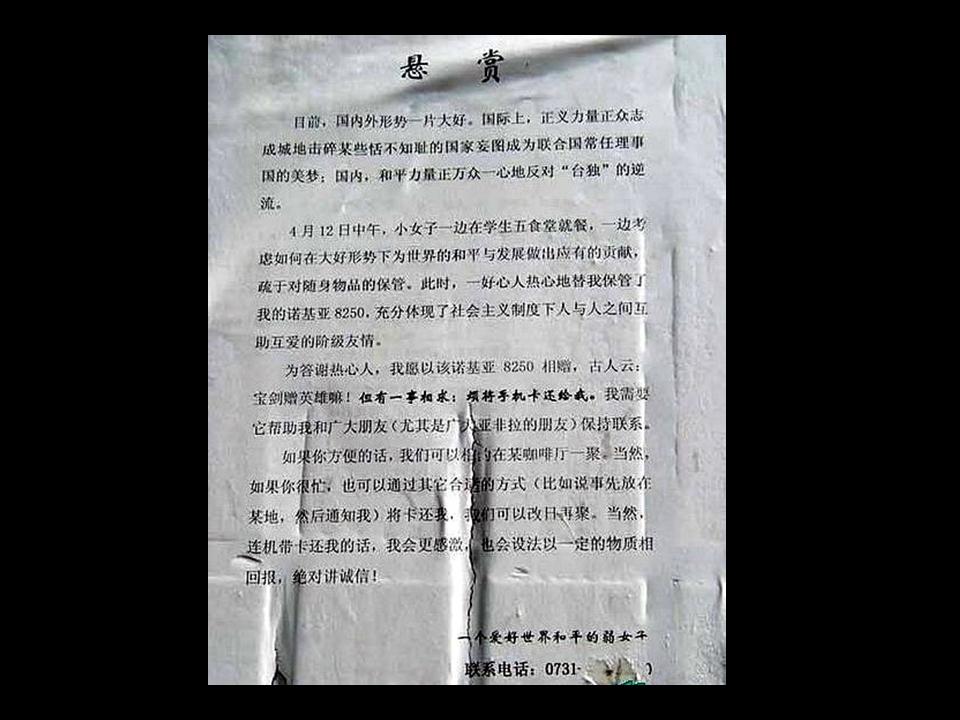 悬 赏
目前，国内外形势一片大好。国际上，正义力量正众志
成城地击碎某些恬不知耻的国家妄图成为联合国常任理事
国的美梦；国内，和平力量正万众一心地反对“台独”的逆
流。
4月12日中午，小女子一边在学生五食堂就餐，一边考
虑如何在大好形势下为世界的和平与发展做出应有的贡献，
疏于对随身物品的保管。此时，一好心人热心地替我保管了
我的诺基亚8250，充分体现了社会主义制度下人与人之间互
助互爱的阶级友情。
为答谢热心人，我愿以该诺基亚 8250 相赠，古人云：
宝剑赠英雄嘛！但有一事相求：烦将手机卡还给我。我需要
它帮助我和广大朋友（尤其是广大亚非拉的朋友）保持联系。
如果你方便的话，我们可以相约在某咖啡厅一聚。当然，
如果你很忙，也可以通过其它合适的方式（比如说事先放在
某地，然后通知我）将卡还我，我们可以改日再聚。当然，
连机带卡还我的话，我会更感激，也会设法以一定的物质相
回报，绝对讲诚信！
一个爱好世界和平的弱女子
联系电话：0731-